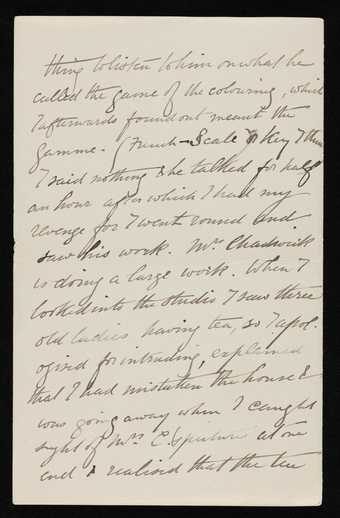 thing to listen to him on what he
called the game of the colouring, which
I afterwards found out meant the
gamme. (French - Scale or Key) then
I said nothing & he talked for half
an hour after which I had my
revenge for I went round and
saw his work. Mr. Chadwick
is doing a large work. When I
looked into the studio I saw three
old ladies having tea, so I apol-
ogised for intruding, explained
that I had mistaken the house &
was going away when I caught
sight of Mrs C. (picture at one
end & realised that the tea